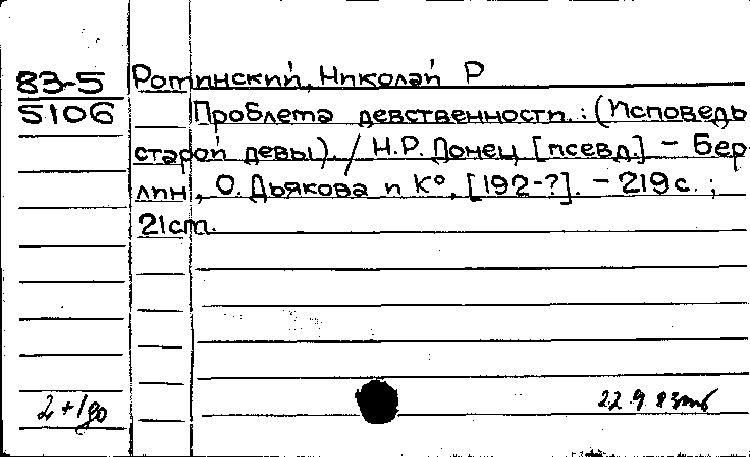 83-5
5106
Ротинский, Николай Р
Проблема девственности. : (Исповедь
старой девы). / Н.Р. Донец [псевд.] – Бер-
лин, О. Дьякова и К°, [192-?]. – 219 с. ;
21 cm.
2+1 до
22.9.83